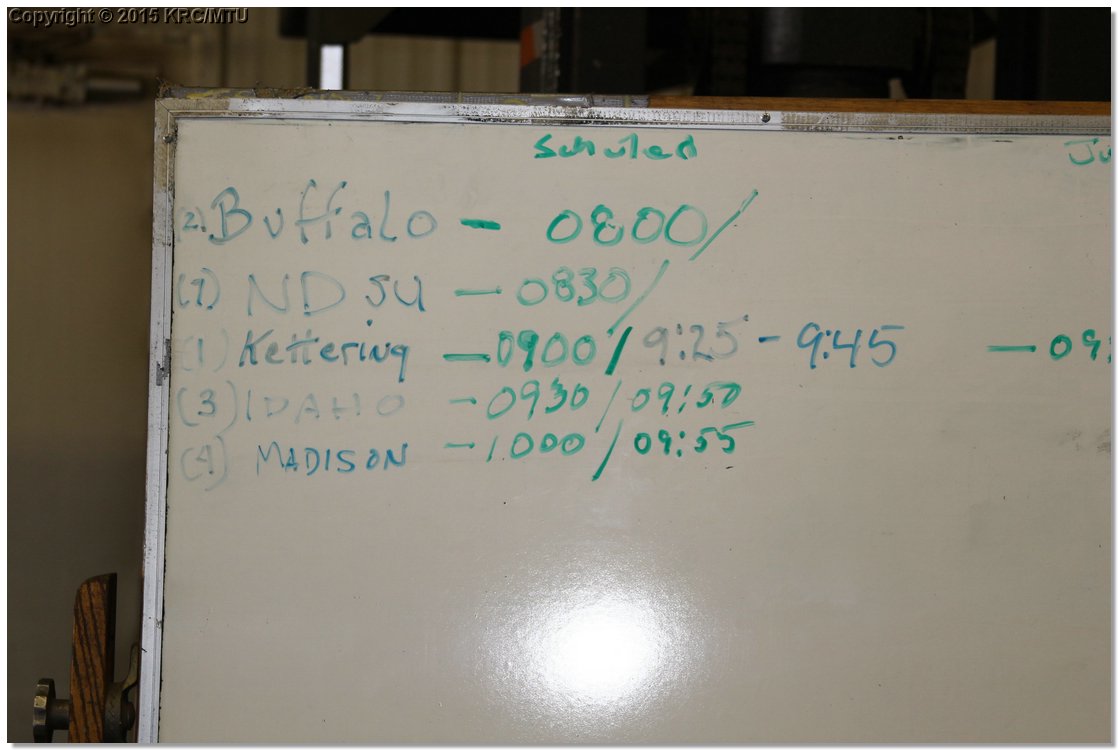 Copyright © 2015 KRC/MTU
Schuled Ju
(2) Buffalo - 0800/
NDSU - 0830/
(1) Kettering - 0900/ 9:25 - 9:45 - 09:
(3) IDAHO - 0930/09:50
(4) MADISON - 1000/09:55